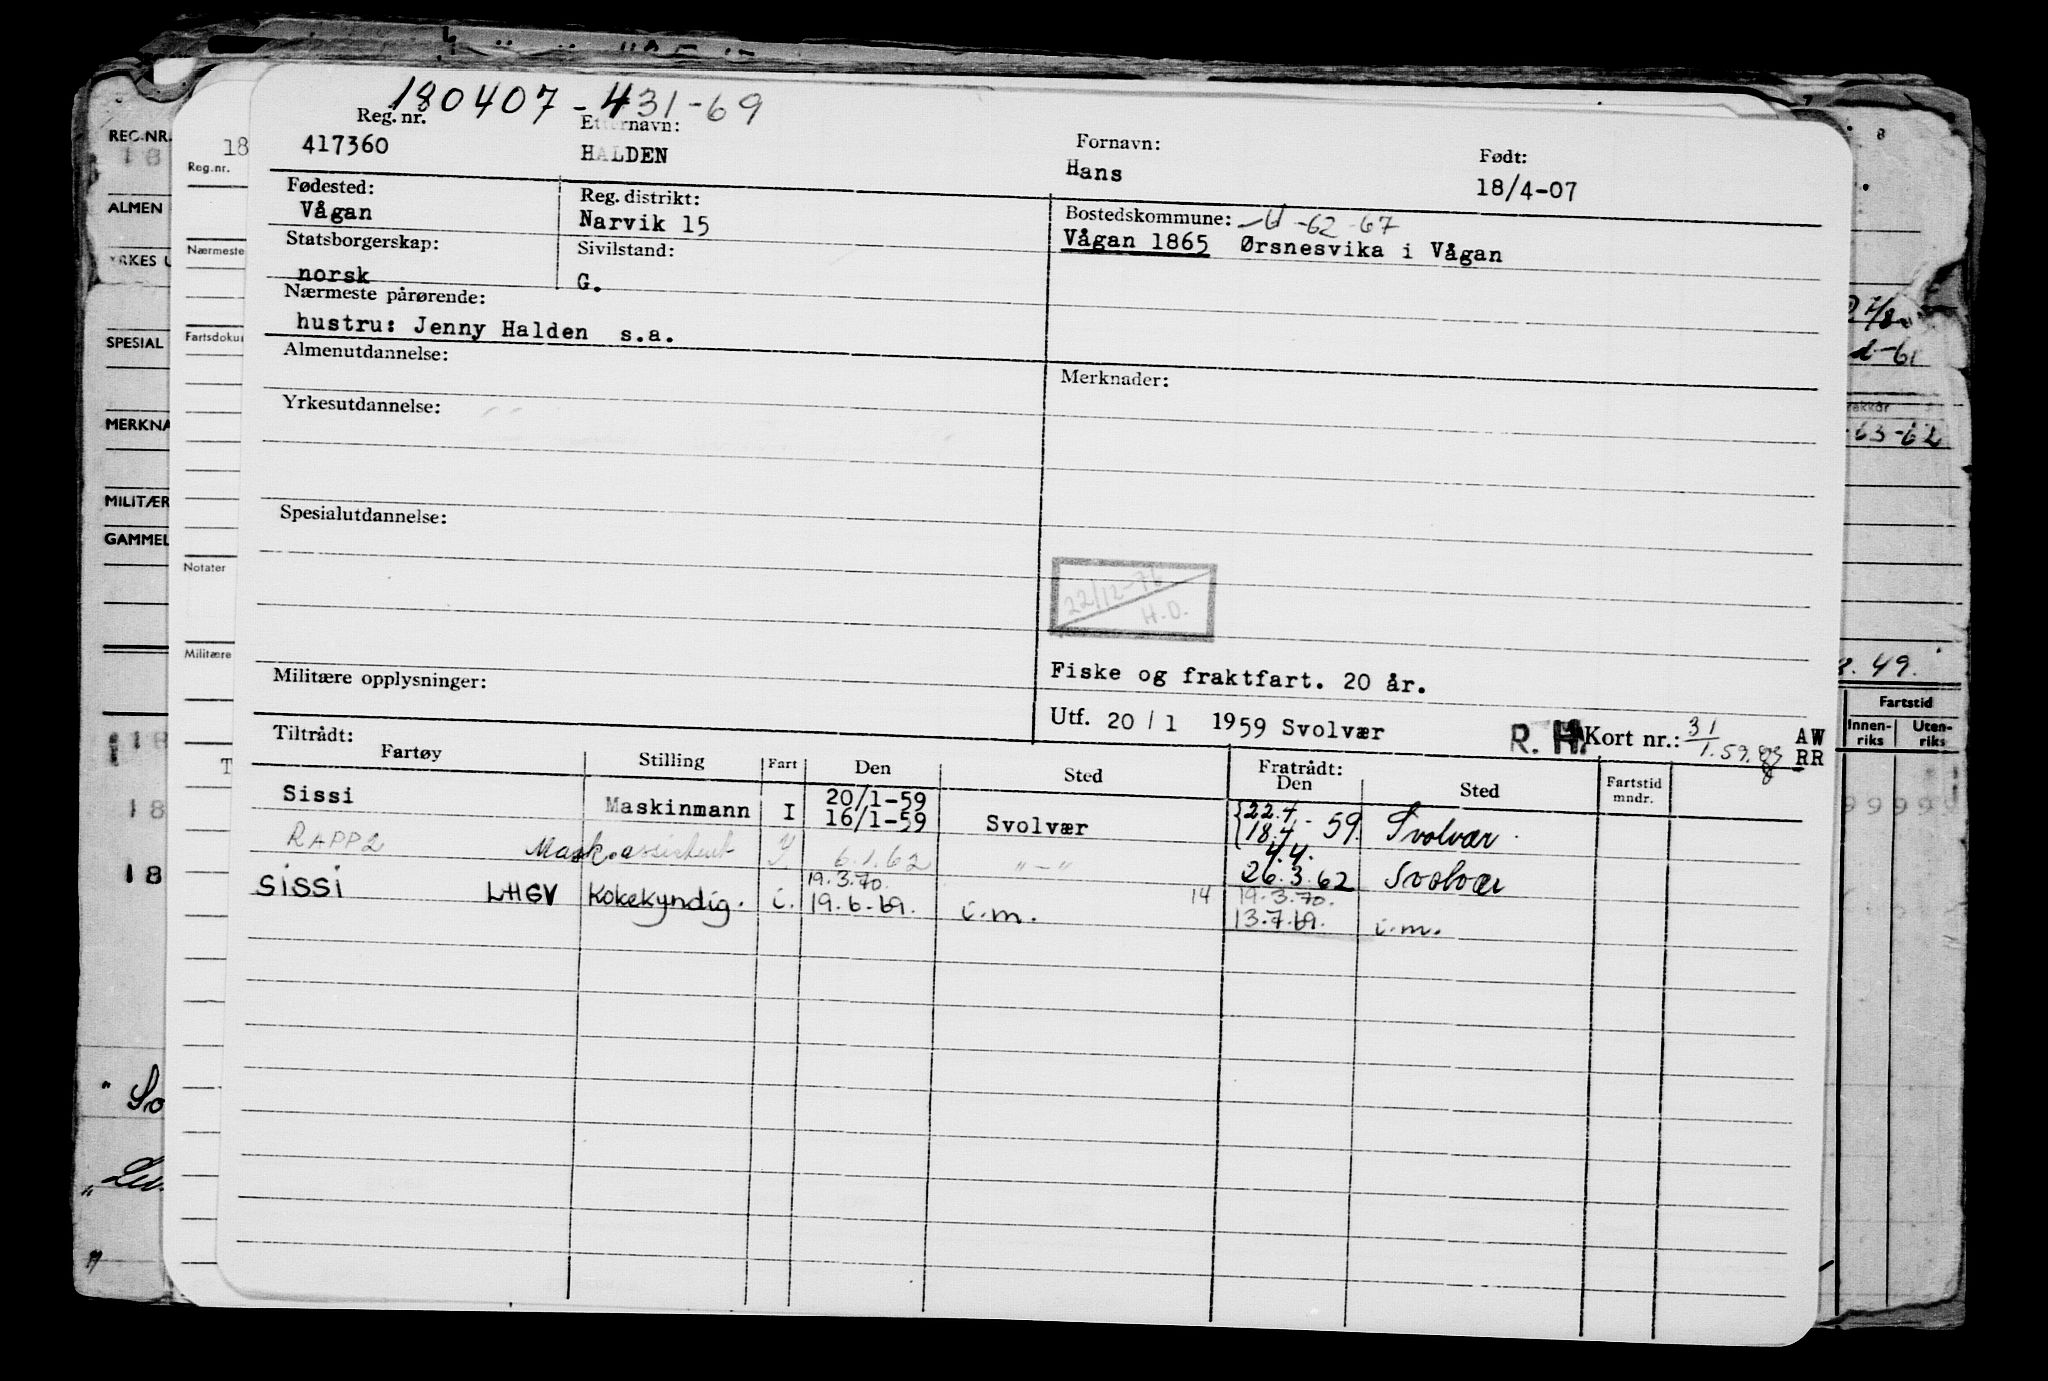 180407-431-69
Reg. nr. Etternavn: Fornavn: Født:
417360 HALDEN Hans 18/4-07
Fødested: Reg. distrikt: Bostedskommune: -62-67
Vågan Narvik 15 Vågan 1865 Ørsnesvika i Vågan
Statsborgerskap: Sivilstand:
norsk G.
Nærmeste pårørende:
hustru: Jenny Halden s.a.
Almenutdannelse: Merknader:
Yrkesutdannelse:
Spesialutdannelse:
22/12-71
H.O.
Fiske og fraktfart. 20 år.
Militære opplysninger:
Utf. 20/1 1959 Svolvær R. H. Kort nr.: 31/1.59. AW
RR
Tiltrådt: Fratrådt:
Fartøy Stilling Fart Den Sted Den Sted Fartstid mndr.
Sissi Maskinmann I 20/1-59 22.4
16/1-59 Svolvær 18.4 - 59. Svolvær.
RAPP2 Mask.assistent 6.1.62 "-" 4.4.
26.3.62 Svolvær
19.3.70. 14 19.3.70.
SISSI LHGV Kokekyndig. i. 19.6.69. i.m. 13.7.69. i.m.
REG.NR.
18
Reg.nr.
ALMEN
Nærmeste
YRKES U
SPESIAL
Fartsdoku
MERKNA
MILITÆR
GAMMEL
Notater
Militære
T
18
18
18
"So
"
8
-61
63-62
49.
Fartstid
Innen-
riks
Uten-
riks
9 9 9 9 9